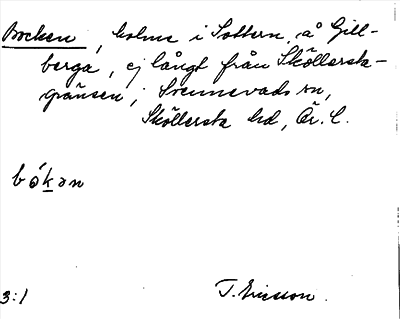 Bocken, holme i Sottern, å Gill-
berga, ej långt från Sköllersta-
gränsen; Svennevads sn,
Sköllersta hd, Ör. l.
bókən
3:1
T. Ericsson.